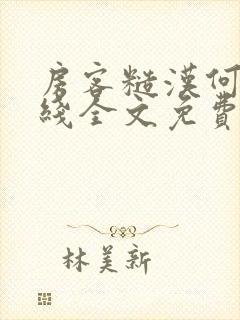 房客糙漢何
綫全文免費
林美新